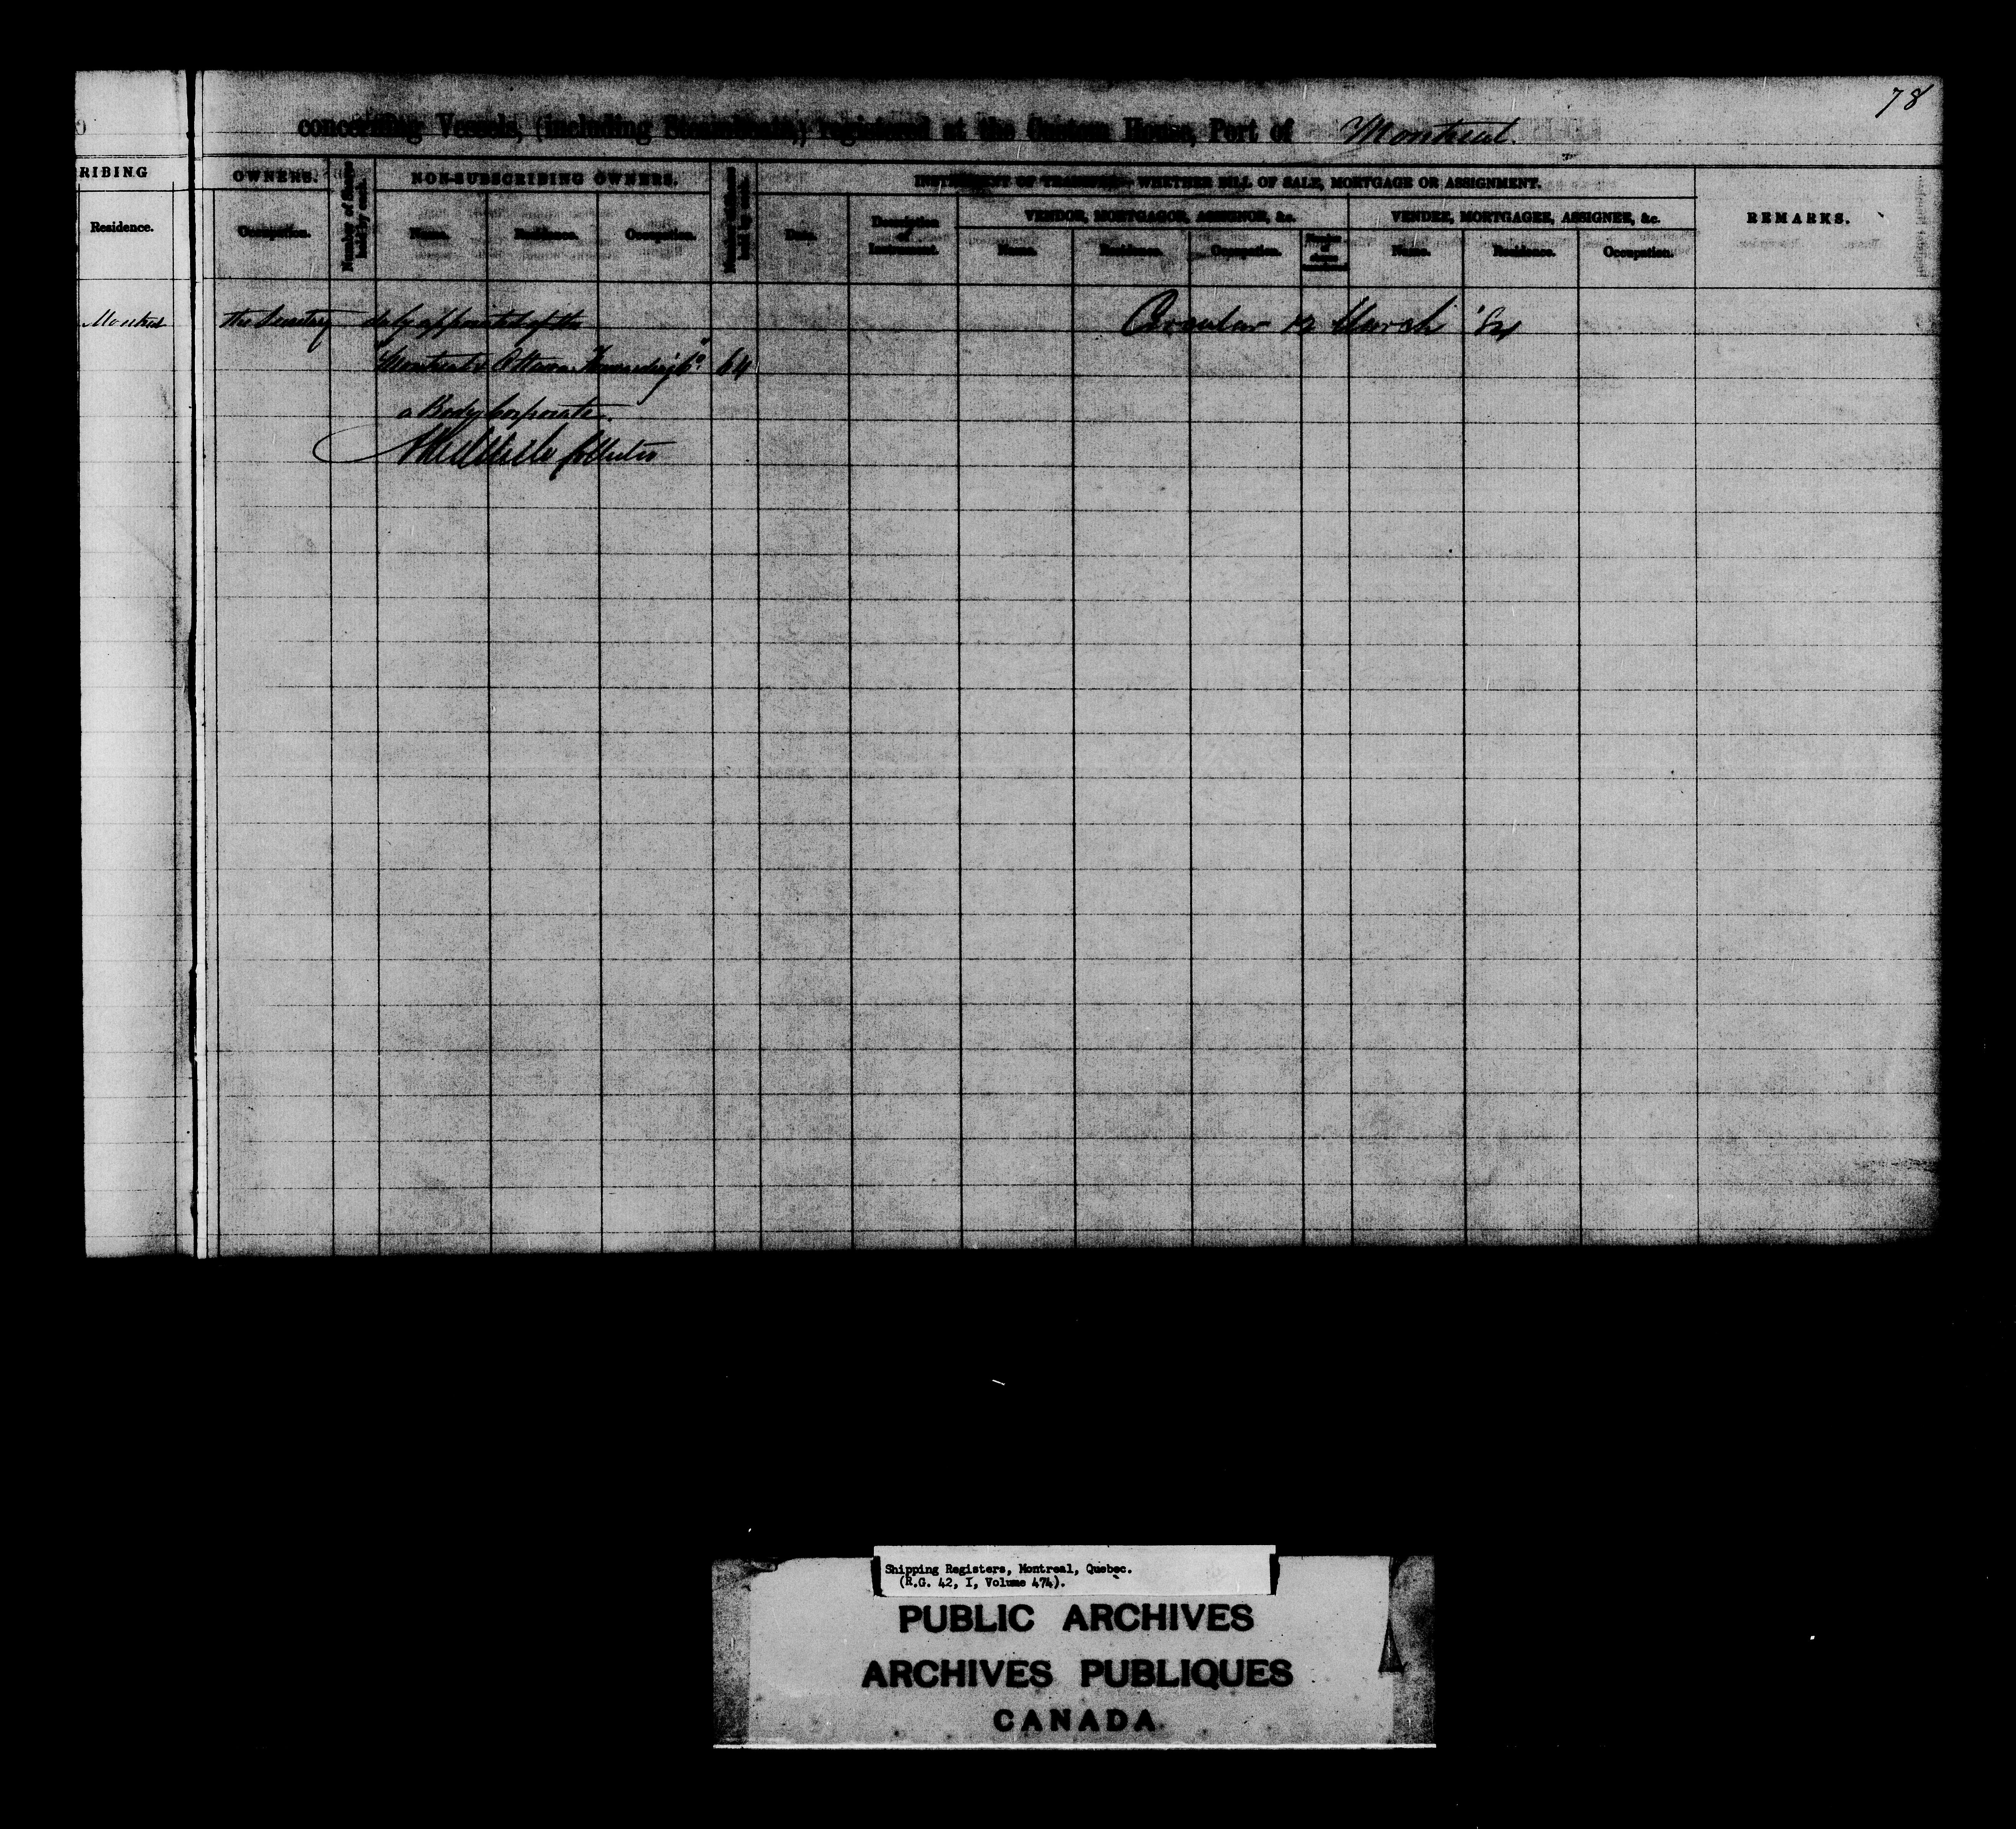 78
concerning Vessels, (including Steamboats,) registered at the Custom House, Port of Montreal.
RIBING
OWNERS.
Number of Shares held by each.
NON-SUBSCRIBING OWNERS.
Number of Shares held by each.
INSTRUMENT OF TRANSFER—WHETHER BILL OF SALE, MORTGAGE OR ASSIGNMENT.
REMARKS.
Residence.
Occupation.
Name.
Residence.
Occupation.
Date.
Description of Instrument.
VENDOR, MORTGAGOR, ASSIGNOR, &c.
VENDEE, MORTGAGEE, ASSIGNEE, &c.
Name.
Residence.
Occupation.
Number of shares
Name.
Residence.
Occupation.
Montreal the Secretary duly appointed of the
Circular 12 March
"Montreal & Ottawa Forwarding Co" 64
a Body Corporate
Collector
Shipping Registers, Montreal, Quebec.
(R.G. 42, I, Volume 474).
PUBLIC ARCHIVES
ARCHIVES PUBLIQUES
CANADA